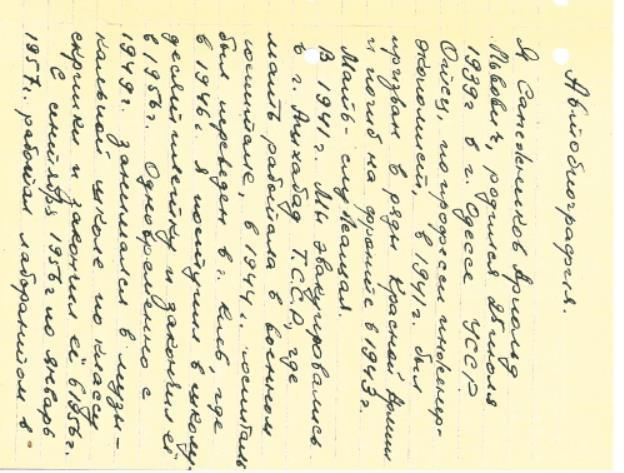 Автобиография.
Я Санежников Арнольд
Львович, родился 25 июля
1939г в г. Одессе УССР
Отец, по профессии инженер-
экономист, в 1941г. был
призван в ряды Красной Армии
и погиб на фронте в 1943г.
Мать - служащая.
В 1941г. мы эвакуировались
в г. Ашхабад Т.С.С.Р, где
мать работала в военном
госпитале, в 1944г. госпиталь
был переведен в г. Киев, где
в 1946г. я поступил в школу
десятилетку и закончил её
в 1956г. Одновременно с
1949г. занимался в музы-
кальной школе по классу
скрипки и закончил её в 1956г.
С сентября 1956г по январь
1957г. работал лаборантом в